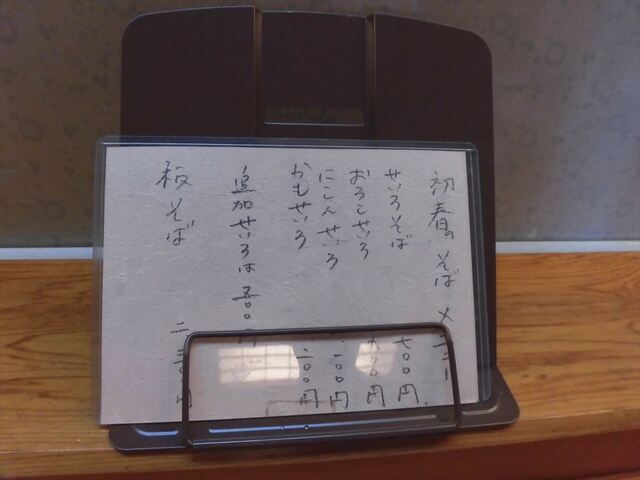 初春のそば メニュー
せいろそば 七〇〇円
おろしせいろ 〇〇円
にしんせいろ 一〇〇円
かもせいろ 二〇〇円
追加せいろは 五〇〇円
板そば 二三〇〇円